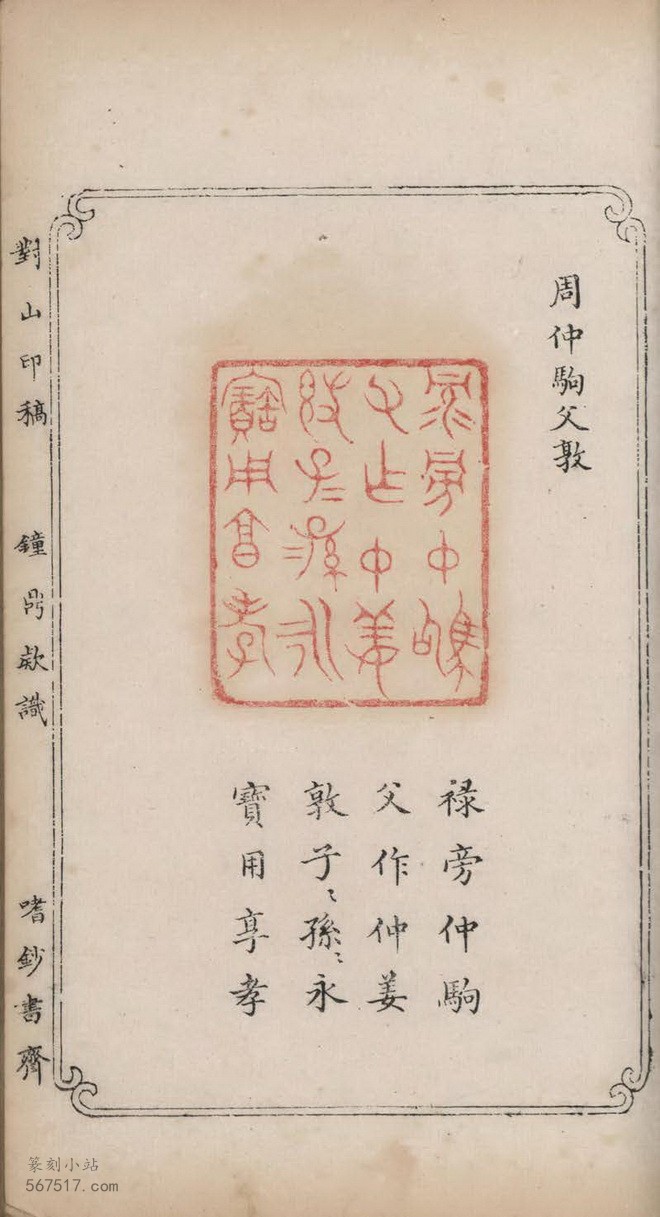 周仲駒父敦
祿旁仲駒
父作仲姜
敦子〻孫〻永
寶用享孝
對山印稿 鐘鼎欵識 嗜鈔書齋
篆刻小站
567517.com